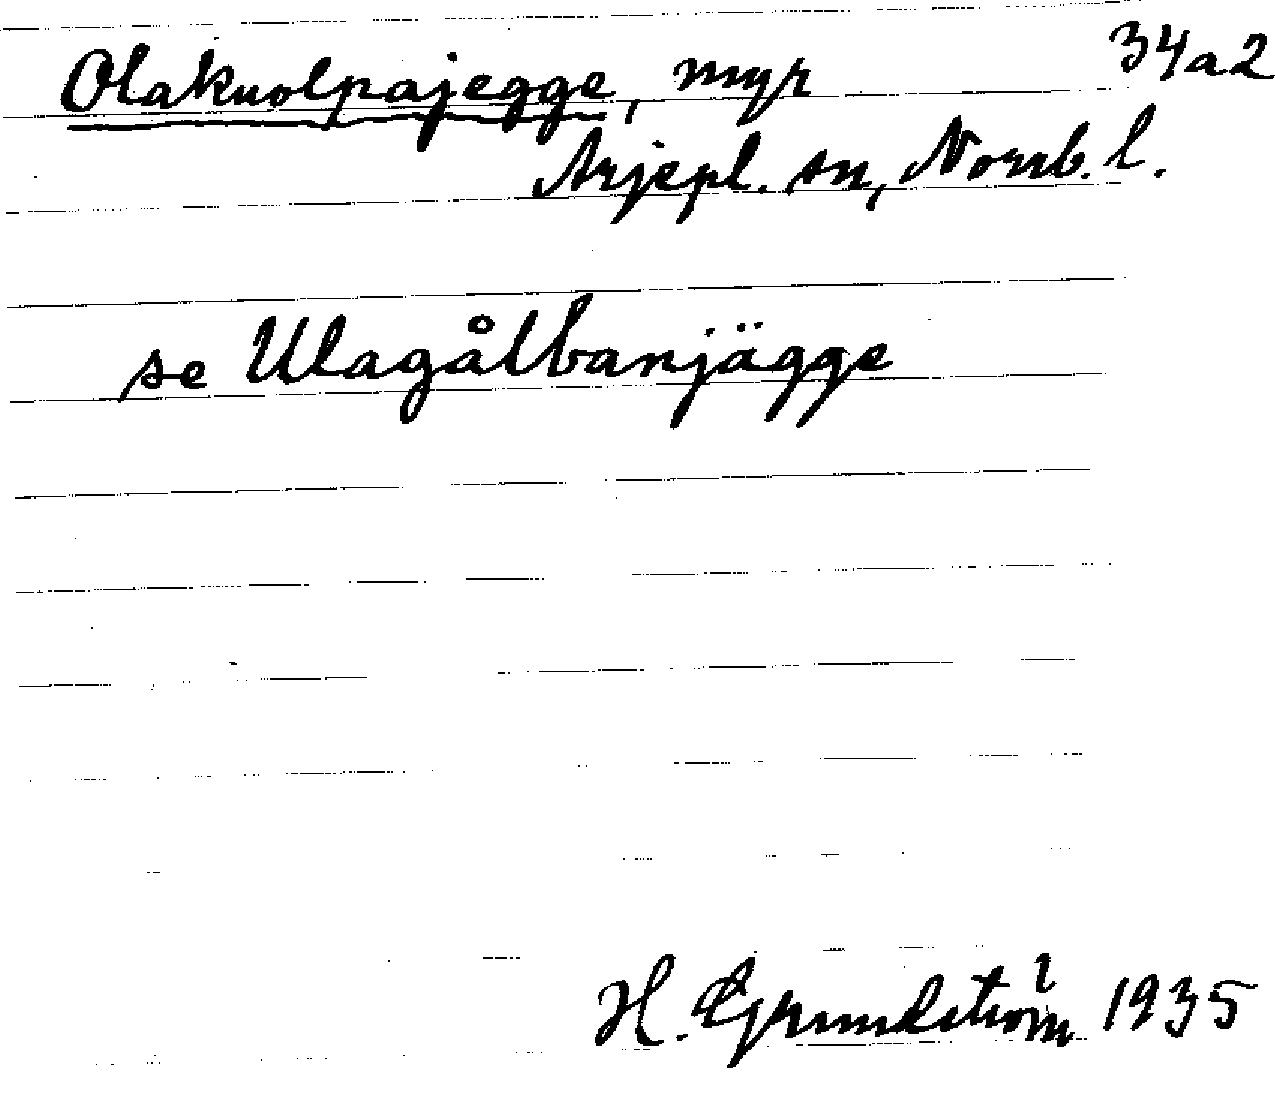 Olakuolpajegge, myr 34a2
Arjepl. sn, Norrb. l.
se Ulagålbanjägge
H. Grundström 1935